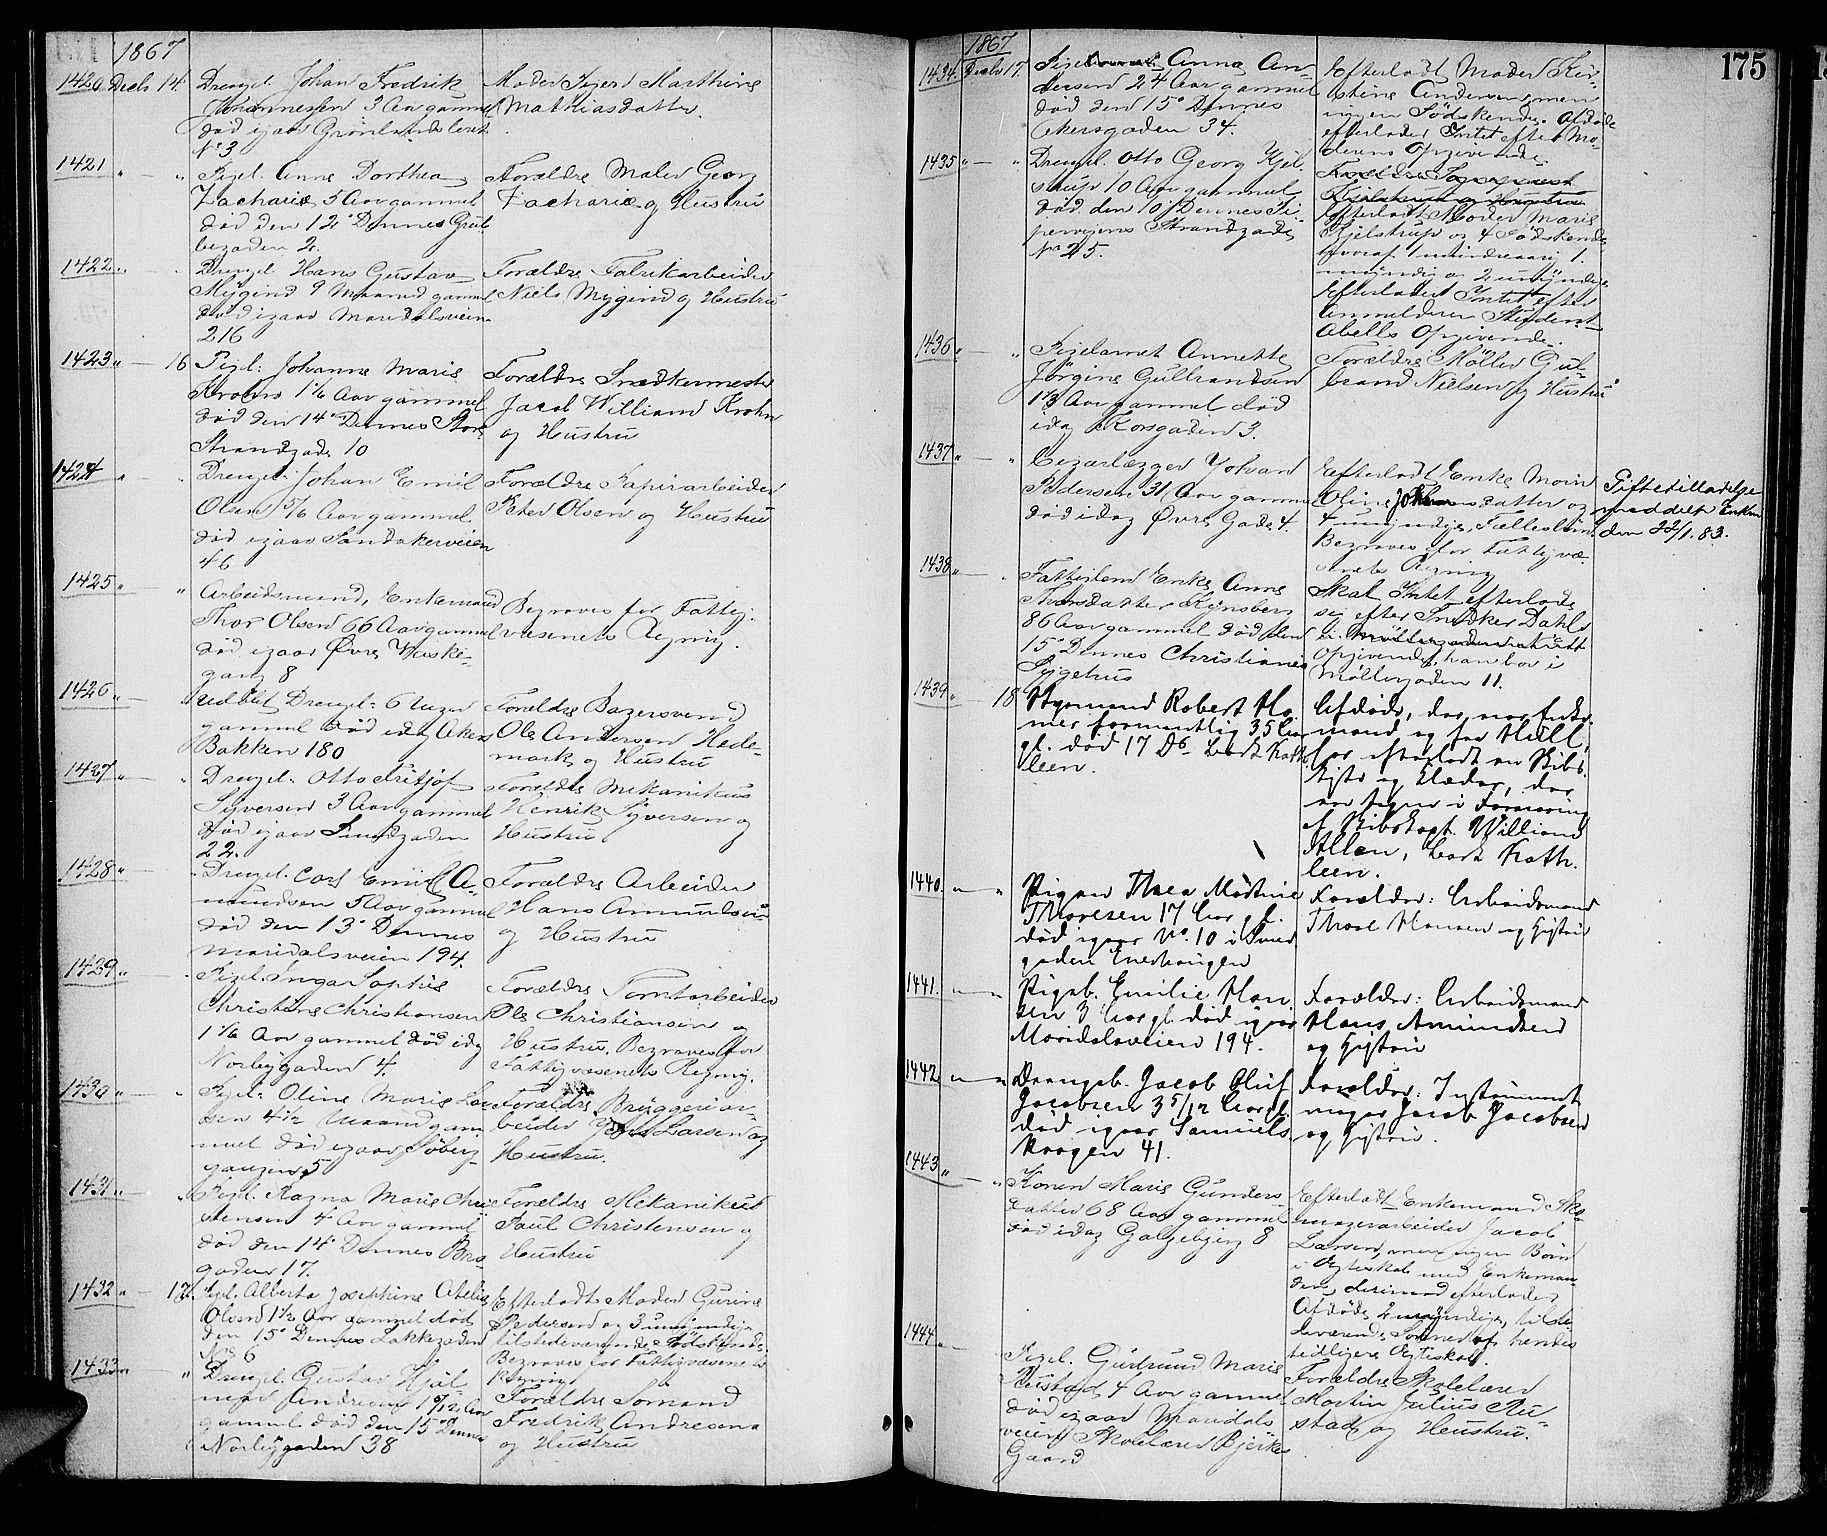 1867
1420 Decbr 14. Drengeb. Johan Fredrik
Johannessen 3 Aar gammel
død igaar Grønlandsleret
No 3
Moder Pigen Marthine
Mathiasdatter.
1421 " — " Pigeb. Anne Dorthea
Zachariæ 5 Aar gammel
død den 12' Dennes Grub
begaden 2.
Forældre Maler Georg
Zachariæ og Hustru
1422 " — " Drengeb. Hans Gustav
Mygind 9 Maaned gammel
død igaar Maridalsveien
216
Forældre Fabrikarbeider
Niels Mygind og Hustru
1423 " — 16 Pigb: Johanne Marie
Krohn 1 1/6 Aar gammel
død den 14' Dennes Store
Strandgade 10
Forældre Snedkermester
Jacob William Krohn
og Hustru
1424 " " Drengeb: Johan Emil
Olsen 5/6 Aar gammel
død igaar Sandakerveien
46
Forældre Papirarbeider
Peter Olsen og Hustru
1425 " — " Arbeidsmand, Enkemand
Thor Olsen 66 Aar gammel
død igaar Øvre Vaske-
gang 8
Begraves for Fattig-
væsenets Regning.
1426 " — udøbt Drengeb: 6 Uger
gammel død idag Akers
Bakken 180
Forældre Bagersvend
Ole Andersen Hede-
mark og Hustru
1427 " — " Drengeb: Otto Fritjof
Syversen 3 Aar gammel
død igaar Smedgaden
22.
Forældre Mekanikus
Henrik Syversen og
Hustru
1428 " — " Drengeb. Carl Emil A-
mundsen 5 Aar gammel
død den 13' Dennes
Maridalsveien 194.
Forældre Arbeider
Hans Amundsen
og Hustru
1429 " — Pigeb. Inga Sophie
Christine Christiansen
1 1/6 Aar gammel død idag
Norbygaden 4.
Forældre Tomtarbeider
Ole Christiansen og
Hustru. Begraves for
Fattigvæsenets Regning.
1430 " — " Pigeb: Oline Marie Lar
sen 4 1/2 Maaned gam
mel død igaar Søberg
gangen 5
Forældre Bryggeriar-
beider Larsen og
Hustru.
1431 " — " Pigeb. Ragna Marie Chri
stensen 4 Aar gammel
død den 14' Dennes Bro
gaden 17.
Forældre Mekanikus
Paul Christensen og
Hustru
1432 " — 17. Pigeb. Alberta Josephine Atelie
Olsen 1 1/2 Aar gammel død
den 15' Dennes Lakkegaden
No 6
Efterladt Moder Gurine
Pedersen og 3 umyndige
tilstedeværende Sødskende
Begraves for Fattigvæsenets
Regning
1433 " " Drengeb. Gustav Hjal
mar Andresen 1 9/12 Aar
gammel død den 15' Dennes
Norbygaden 38
Forældre Sømand
Fredrik Andresen
og Hustru
1867
175
1434. Decbr 17. Pigebarnet Anna An-
dersen 2 4 Aar gammel
død den 15' Dennes
Akersgaden 34.
Efterladt Moder Kir-
stine Andersen, men
ingen Sødskende. Afdøde
efterlader Intet efter Mo-
derens Opgivende.
1435 " — " Drengeb. Otto Georg Kjel
strup 10 Aar gammel
død den 10' Dennes Pi
pervigens Strandgade
No 25.
Forældre Sogneprest
Kjelstrup og Hustru
Efterladt Moder Marie
Kjelstrup og 4 Sødskende
hvoraf 1 mindreaarig 1
myndig og 2 umyndige
Efterlader Intet efter
Anmelderen Student
Abells Opgivende.
1436 " — " Pigebarnet Annette
Jørgine Gulbrandsen
1 1/3 Aar gammel død
idag Korsgaden 3.
Forældre Møller Gul-
brand Nielsen og Hustru
1437 " — " Cigarlægger Johan
Pedersen 31 Aar gammel
død idag Øvre Gade 4.
Efterladt Enke Morin
Oline Johansdatter og
4 umyndige Fællesbørn
Begraves for Fattigvæ
senets Regning
Giftetilladelse
meddelt Enken
den 22/1. 83.
1438 " — " Fattiglem Enke Anne
Thorsdatter Kynsberg
86 Aar gammel død den
15' Dennes Christiania
Sygehus
Skal Intet efterlade
sig efter Snedker Dahls
Opgivende, han bor i
Møllergaden 11.
1439 " 18 Styrmand Robert Ho
mer formentlig 35 Aar
gl. død 17 Ds Bark Kath
leen.
Afdøde, der var Enke-
mand og fra Hull,
har efterladt en Skibs
kiste og Klæder, der
var tagne i Forvaring
af Skibskapt. William
Allen, Bark Kath-
leen.
1440. — " Pigen Thea Martine
Thoresen 17 Aar gl.
død igaar No. 10 i Smed
gaden Enerhaugen
Forældre: Arbeidsmand
Thore Hansen og Hustru
1441. — " Pigeb. Emilie Han
sen 3 Aar gl. død igaar
Maridalsveien 194.
Forældre: Arbeidsmand
Hans Amundsen
og Hustru
1442 — " Drengeb. Jacob Oluf
Jacobsen 3 5/12 Aar gl.
død igaar Samuels
haugen 41.
Forældre: Instrument
mager Jacob Jacobsen
og Hustru.
1443 " — " Konen Marie Gunders
datter 68 Aar gammel
død idag Galgebjerg 8
Efterladt Enkemand Sko-
magerarbeider Jacob
Larsen, men ingen Børn
i Ægteskab med Enkeman
den, derimod efterlader
Afdøde 2 myndige, tilste
deværende Sønner af hendes
tidligere Ægteskab.
1444 — Pigeb. Gudrund Marie
Rustad 4 Aar gammel
død igaar Maridals
veien Skolelærer Bjerke
Gaard
Forældre Skolelærer
Martin Julius Ru-
stad og Hustru.